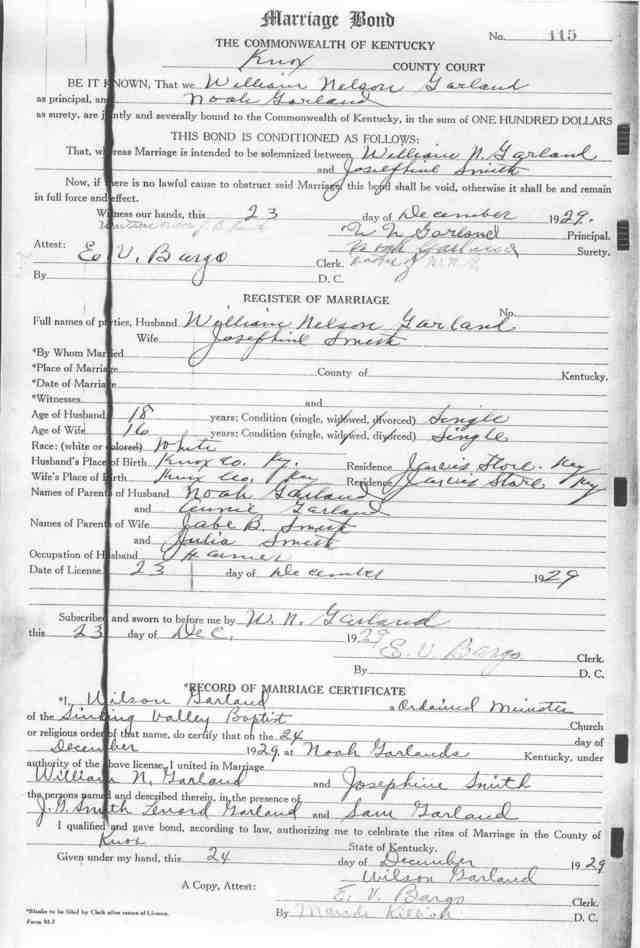 Marriage Bond
No. 115
THE COMMONWEALTH OF KENTUCKY
Knox COUNTY COURT
BE IT KNOWN, That we William Nelson Garland
as principal, and Noah Garland
as surety, are jointly and severally bound to the Commonwealth of Kentucky, in the sum of ONE HUNDRED DOLLARS
THIS BOND IS CONDITIONED AS FOLLOWS:
That, whereas Marriage is intended to be solemnized between William N. Garland
and Josephine Smith
Now, if there is no lawful cause to obstruct said Marriage, this bond shall be void, otherwise it shall be and remain
in full force and effect.
Witness our hands, this 23 day of December 1929.
W N Garland Principal.
Noah Garland Surety.
Attest: E. V. Bargo Clerk.
By D. C.
REGISTER OF MARRIAGE
No.
Full names of parties, Husband William Nelson Garland
Wife Josephine Smith
*By Whom Married
*Place of Marriage County of Kentucky.
*Date of Marriage
*Witnesses and
Age of Husband 18 years; Condition (single, widowed, divorced) Single
Age of Wife 16 years; Condition (single, widowed, divorced) Single
Race: (white or colored) White
Husband's Place of Birth Knox Co. Ky. Residence Jarvis Store. Key
Wife's Place of Birth Knox Co. Key Residence Jarvis Store Key
Names of Parents of Husband Noah Garland
and Annie Garland
Names of Parents of Wife Jabe B. Smith
and Julia Smith
Occupation of Husband Farmer
Date of License 23 day of December 1929
Subscribed and sworn to before me by W. N. Garland
this 23 day of Dec. 1929
E. V. Bargo Clerk.
By D. C.
*RECORD OF MARRIAGE CERTIFICATE
*I, Wilson Garland a Ordained Minister
of the Sinking Valley Baptist Church
or religious order of that name, do certify that on the 24 day of
December 1929, at Noah Garlands Kentucky, under
authority of the above license, I united in Marriage
William N. Garland and Josephine Smith
the persons named and described therein, in the presence of
J. T. Smith Lenord Garland and Sam Garland
I qualified and gave bond, according to law, authorizing me to celebrate the rites of Marriage in the County of
Knox State of Kentucky.
Given under my hand, this 24 day of December 1929
Wilson Garland
A Copy, Attest: E. V. Bargo Clerk.
By Maude
*Blanks to be filled by Clerk after return of License.
Form M-2